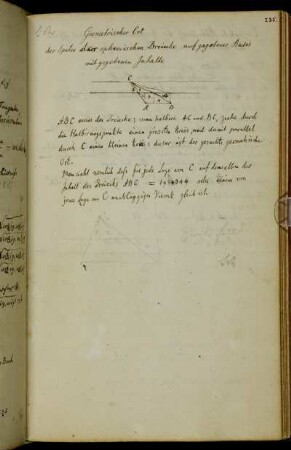 Geometrischer Ort
der Spitze aller sphärischen Dreiecke auf gegebener Basis
mit gegebenem Inhalte
C
A B
ABC eines der Dreiecke; man halbire AC und BC, gehe durch
die Halbirungspunkte einen grössten Kreis und damit parallel
durch C einen kleinen Kreis: dieser ist der gesuchte geometrische
Ort.
Man sieht nämlich dass für jede Lage von C auf demselben der
Inhalt des Dreiecks ABC = 1+2+3+4 oder einem von
jener Lage von C unabhängigen Viereck gleich ist.